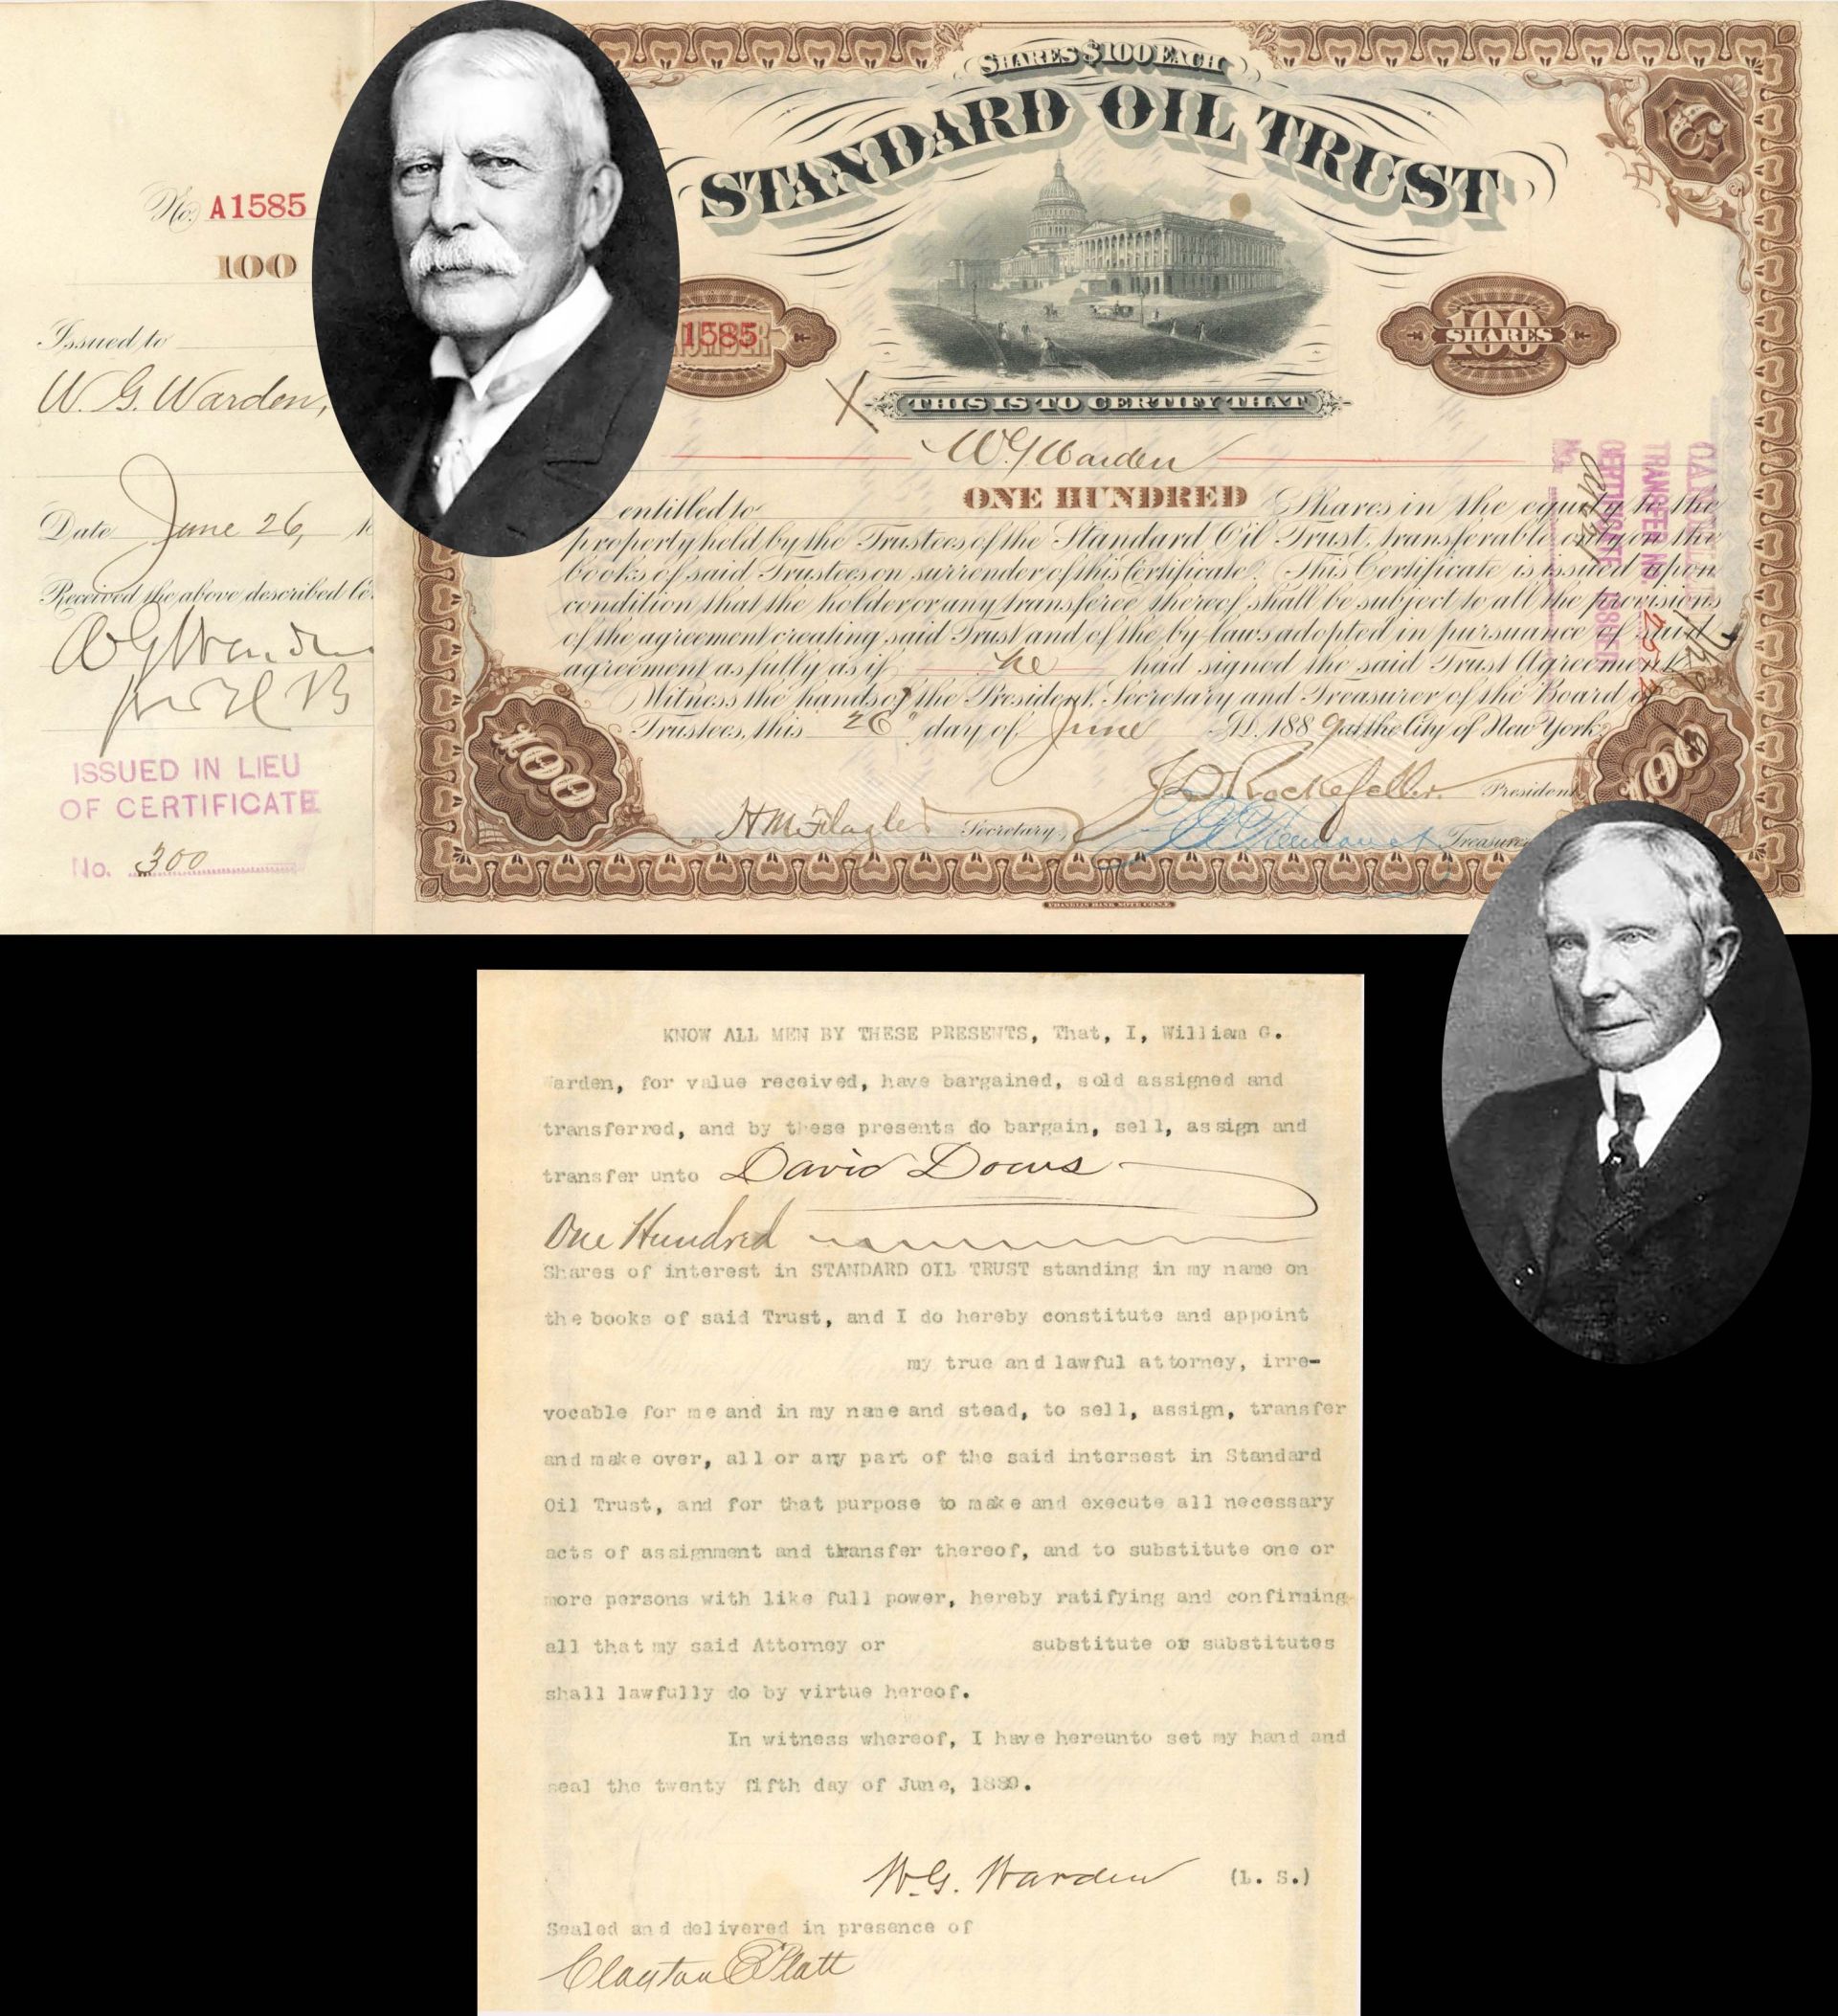 No. A1585
100
Issued to
W. G. Warden,
Date June 26,
Received the above described
W G Warden
ISSUED IN LIEU
OF CERTIFICATE
No. 300
SHARES $100 EACH
STANDARD OIL TRUST
1585
NUMBER
100
SHARES
X
THIS IS TO CERTIFY THAT
W G Warden
entitled to ONE HUNDRED Shares in the equity to the
property held by the Trustees of the Standard Oil Trust, transferable only on the
books of said Trustees on surrender of this Certificate. This Certificate is issued upon
condition that the holder or any transferee thereof shall be subject to all the provisions
of the agreement creating said Trust and of the by-laws adopted in pursuance of said
agreement as fully as if he had signed the said Trust Agreement.
Witness the hands of the President, Secretary and Treasurer of the Board of
Trustees, this 26" day of June A.D. 1889 at the City of New York.
H M Flagler Secretary
J D Rockefeller President
Treasurer
100
100
FRANKLIN BANK NOTE CO. N.Y.
TRANSFER NO.
CERTIFICATE
KNOW ALL MEN BY THESE PRESENTS, That, I, William G.
arden, for value received, have bargained, sold assigned and
transferred, and by these presents do bargain, sell, assign and
transfer unto David Dows
One Hundred
Shares of interest in STANDARD OIL TRUST standing in my name on
the books of said Trust, and I do hereby constitute and appoint
my true and lawful attorney, irre-
vocable for me and in my name and stead, to sell, assign, transfer
and make over, all or any part of the said intersest in Standard
Oil Trust, and for that purpose to make and execute all necessary
acts of assignment and transfer thereof, and to substitute one or
more persons with like full power, hereby ratifying and confirming
all that my said Attorney or substitute or substitutes
shall lawfully do by virtue hereof.
In witness whereof, I have hereunto set my hand and
seal the twenty fifth day of June, 1889.
W. G. Warden (L. S.)
Sealed and delivered in presence of
Clayton E Platt